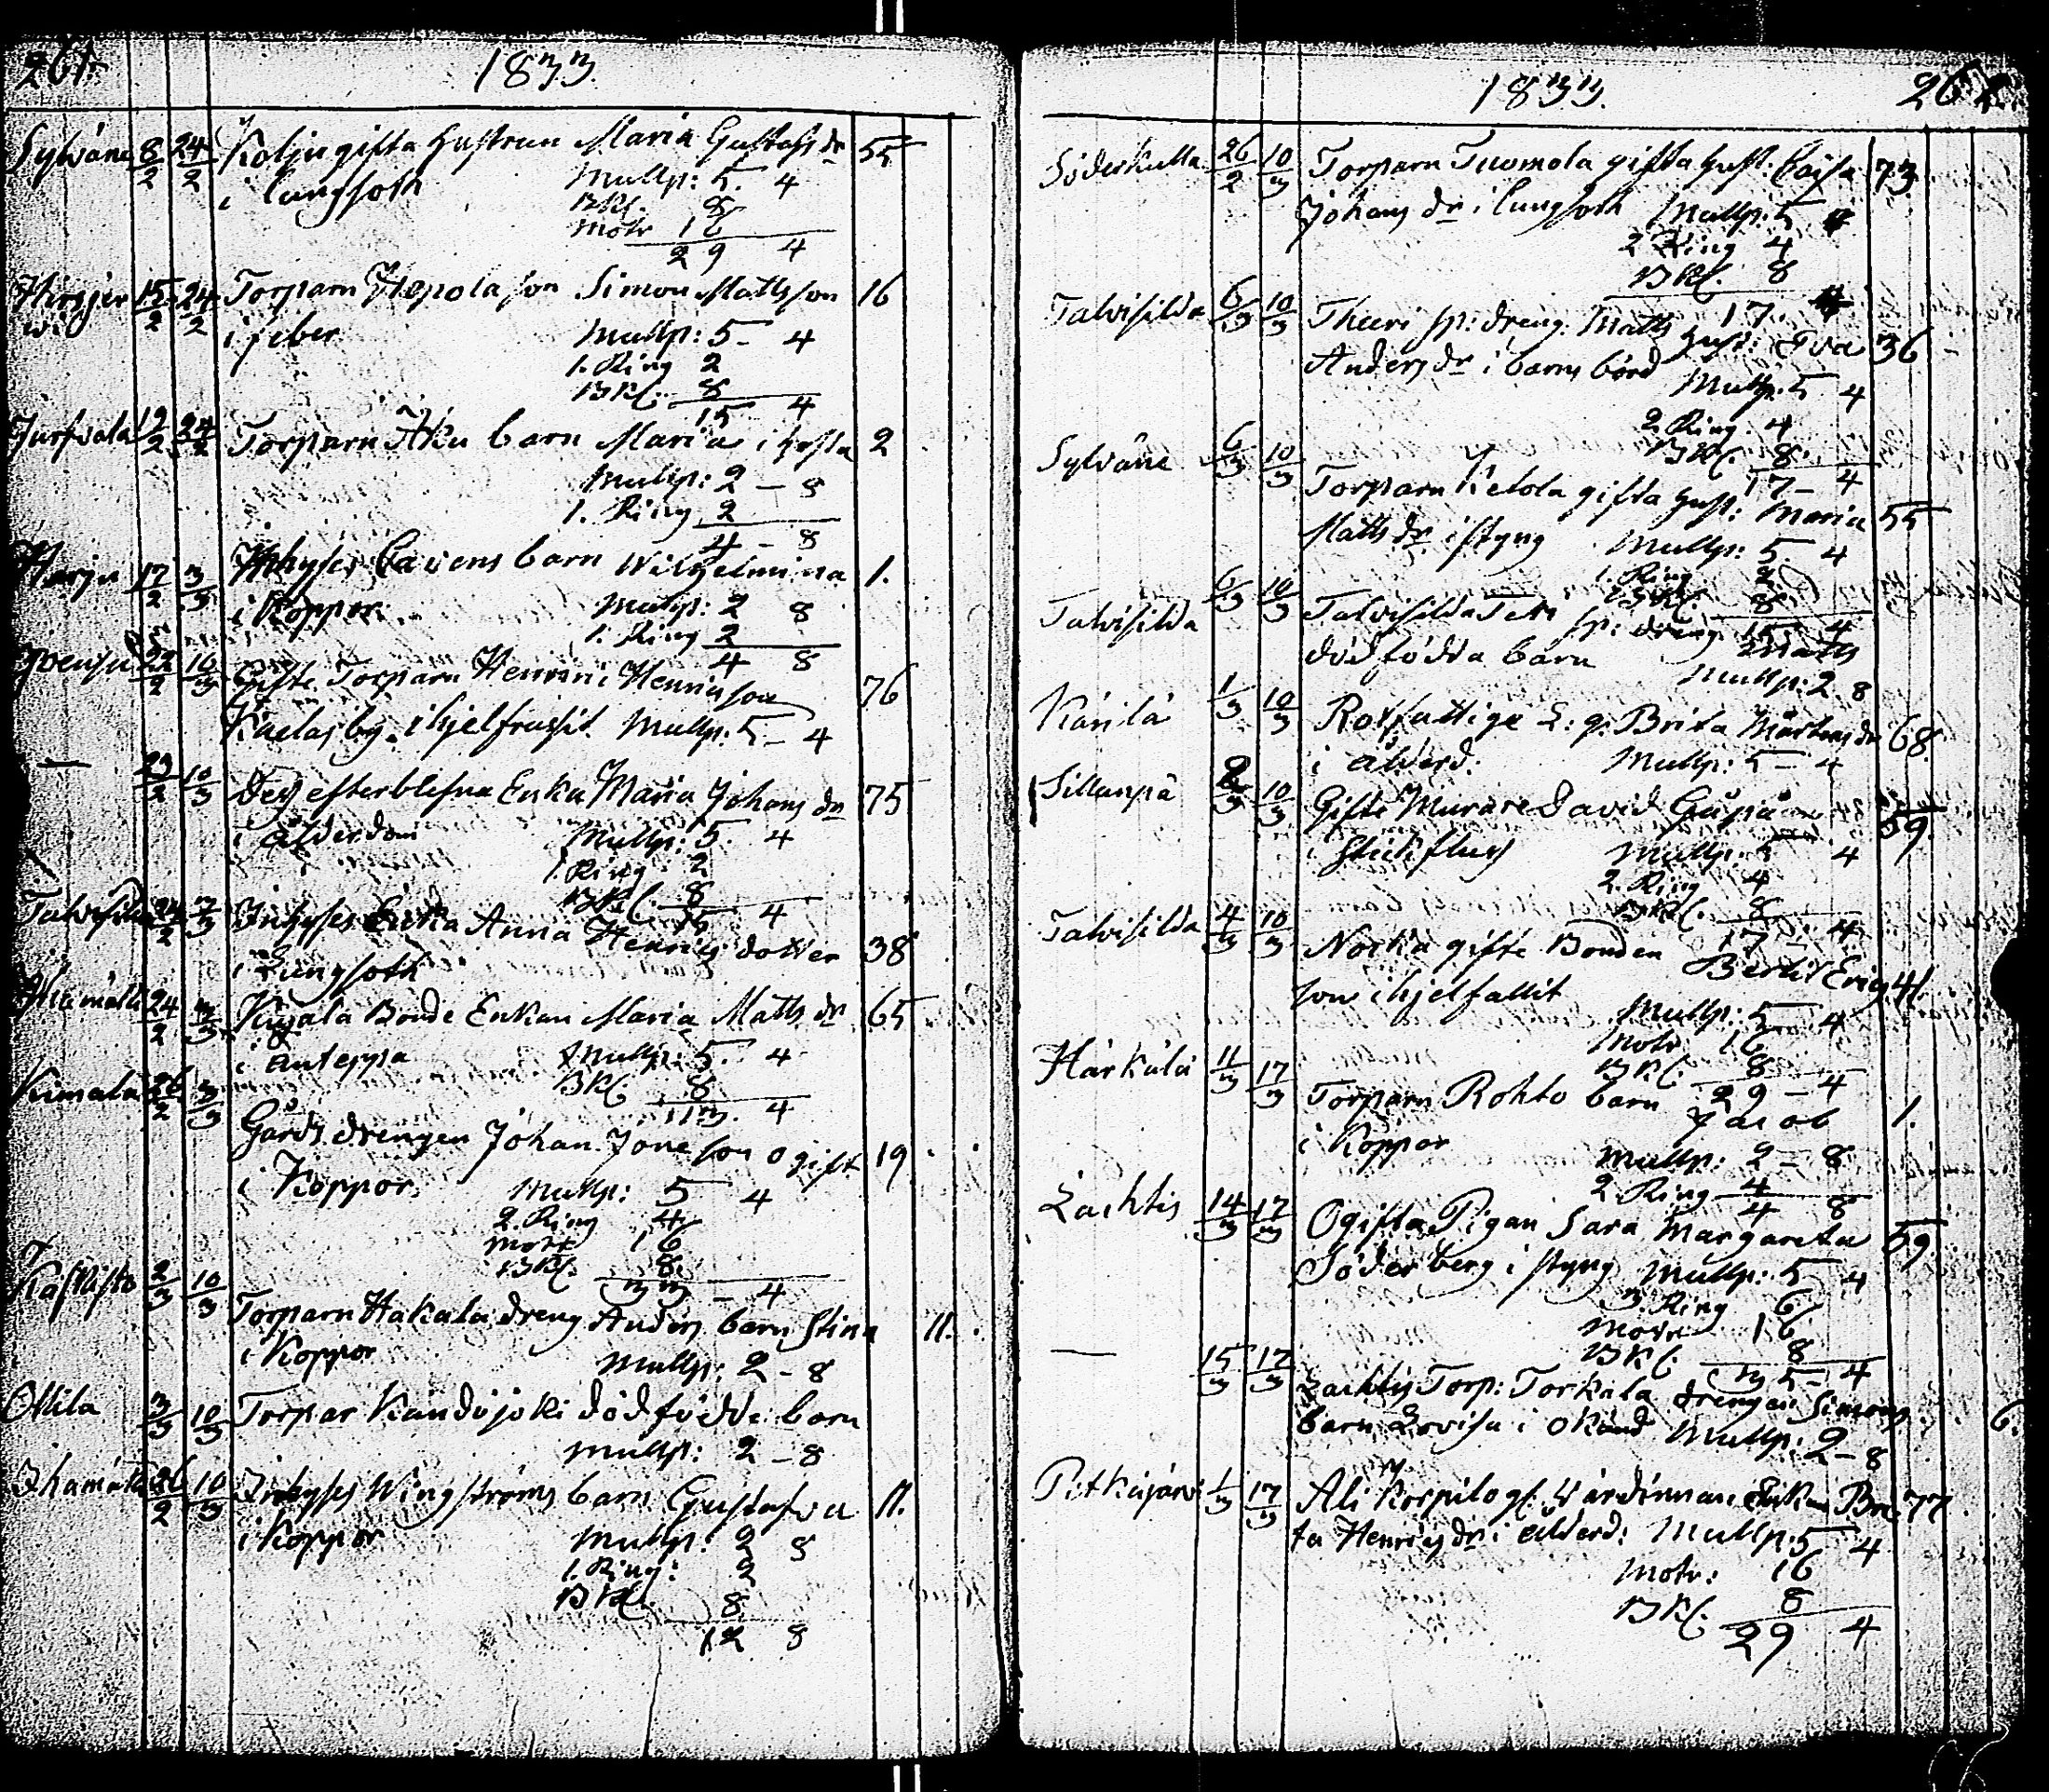 261.
1833.
Sylvänä 8/2 24/2 Kolju gifta hustrun Maria Gustafs dr 55
i lungsoth Mullp: 5. 4
BKl. 8
Motr 16
29 4
Hirsjer 15/2 24/2 Torparn Hepola son Simon Mattsson 16
wi i feber Mullp: 5 - 4
1. Ring 2
BKl. 8
15 4
19/2 24/2 Torparn Äku barn Maria i hosta 2
Mullp: 2 - 8
1. Ring 2
4 - 8
Harju 17/2 3/3 Inhyses barn Wilhelmina 1.
i Koppor. Mullp: 2 8
1. Ring 2
4 8
Joensu 22/2 10/3 Gifte Torparn Henric Henricsson 76
by. ihjelfrusit Mullp: 5 - 4
— 23/2 10/3 Des efterblefna Enka Maria Johans dr 75
i ålderdom Mullp: 5. 4
1. Ring 2
BKl. 8
15 4
Talvisilda 24/2 3/3 Inhyses Enka Anna Henrics dotter 38
i Lungsoth
24/2 3/3 Kujala Bonde Enkan Maria Matts dr 65
i Mullp: 5. 4
BKl 8
13. 4
Kimala 26/2 3/3 Gårds drengen Johan Jone son ogift 19
i Koppor. Mullp: 5 4
2. Ring 4
Motr 16
BKl. 8
33 - 4
Kaskisto 2/3 10/3 Torparn Hakala dreng Anders barn Stina 11.
i Koppor Mullp: 2 - 8
Ollila 3/3 10/3 Torpar Kandojoki dödfödde barn
Mullp: 2 - 8
Ihamäki 26/2 10/3 Inhyses Wingströms barn Gustafva 11.
i Koppor Mullp: 2 8
1. Ring: 2
BKl. 8
12 8
1833. 262.
Söderkulla 26/2 10/3 Torparn Tuomola gifta hust. Caisa 73
Johans dr i lungsoth Mullp: 5 4
2 Ring 4
BKl. 8
17. 4
Talvisilda 6/3 10/3 Theeri sp: dreng. Matts hust: Eva 36
Anders dr i barns börd Mullp. 5 4
2 Ring 4
BKl. 8
17 - 4
Sylväne 6/3 10/3 Torparn Ketola gifta hust: Maria 55
Matts dr i styng Mullp: 5 4
1. Ring 2
BKl. 8
15 4
Talvisilda 6/3 10/3 Talvisilda sp: dreng Matts
dödfödda barn Mullp: 2. 8
Kärilä 1/3 10/3 Rotfattige E: q: Brita Mårtens dr 68
i ålderd: Mullp: 5 - 4
Sillanpä 2/3 10/3 Gifte Murare David 59
i Stickfluss Mullp: 5 4
2. Ring 4
BKl. 8
17. 4
Talvisilda 4/3 10/3 Nocka gifte Bonden Bertil Erics 41.
son ihjelfallit Mullp: 5 4
Motr 16
BKl. 8
29 - 4
Härkälä 11/3 17/3 Torparn Rohto barn Jacob 1.
i Koppor Mullp: 2 - 8
2 Ring 4
4 8
Lachtis 14/3 17/3 Ogifta Pigan Sara Margareta 59
Söderberg i styng Mullp: 5 4
3. Ring 6
Motr 16
BKl. 8
35 - 4
— 15/3 17/3 Lachtis Torp: Torkala drengen Simons 6.
barn Lovisa i okänd Mullp: 2 - 8
Pitkäjärvi 1/3 17/3 Ali Korpilo gl: Wärdinnan Enkan Bri 77
ta Henrics dr i ålderd: Mullp: 5 4
Motr: 16
BKl. 8
29 4